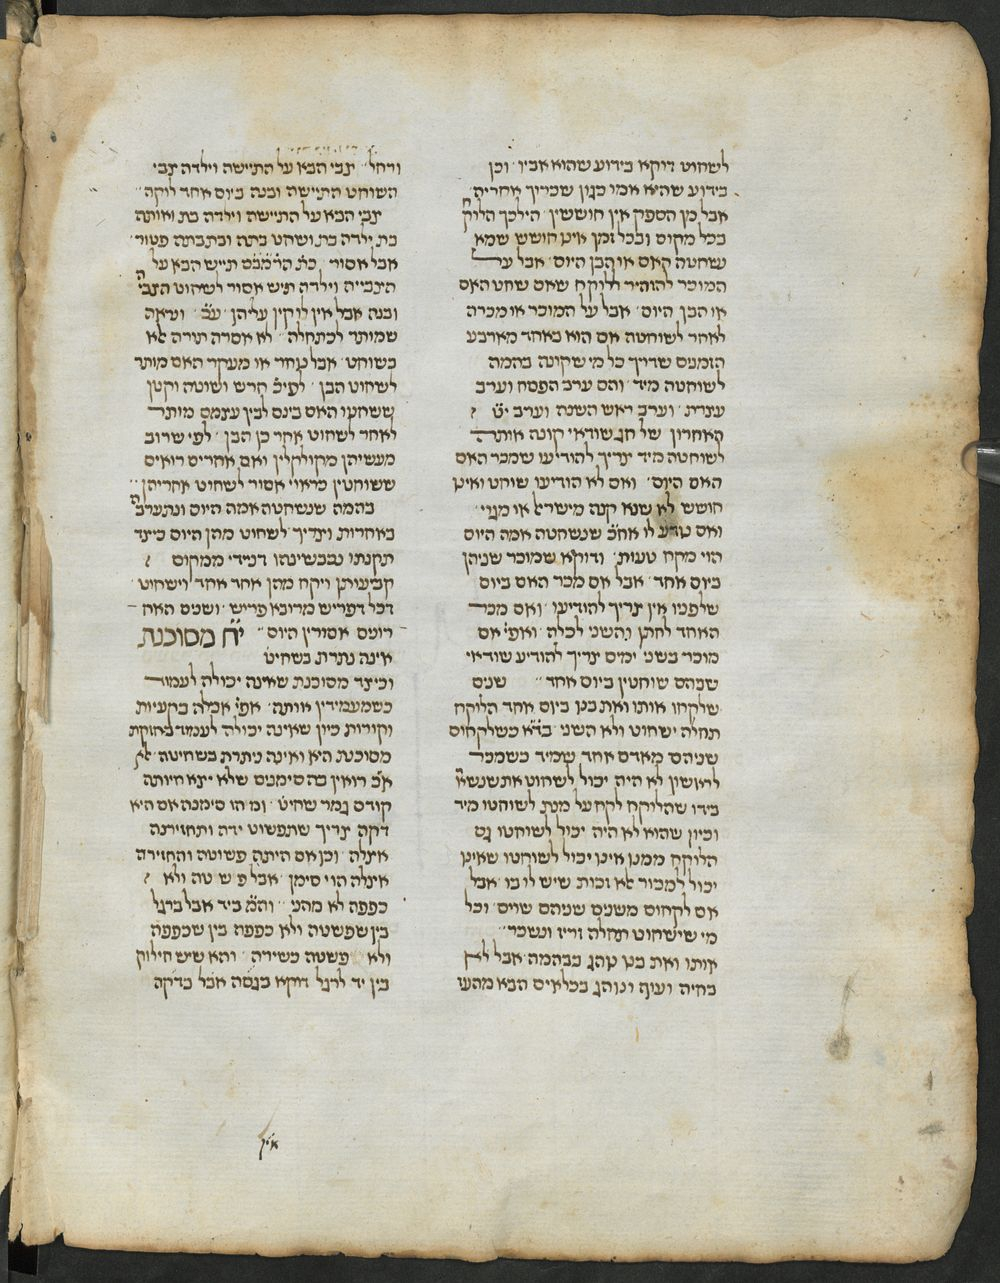 לשחוט דוקא בידוע שהוא אביו וכן
בידוע שהיא אמו כגון שכריך אחריה
אבל מן הספק אין חוששין הילכך הלוקח
בכל מקום ובכל זמן אינו חושש שמא
נשחטה האם או הבן היום אבל על
המוכר להודיע ללוקח שאם שחט האם
או הבן היום אבל על המוכר או מכרה
לאחר לשוחטה אם הוא באחד מארבע
הזמנים שדרך כל מי שקונה בהמה
לשוחטה מיד והם ערב הפסח וערב
עצרת וערב ראש השנה וערב י״ט
האחרון של חג שודאי קונה אותה
לשוחטה מיד צריך להודיעו שמכר האם
האם היום ואם לא הודיעו שוחט ואינו
חושש לא שנא קנה מישראל או מגוי
ואם נודע לו אח״כ שנשחטה אמה היום
הוי מקח טעות ודוקא שמוכר שניהן
ביום אחד אבל אם מכר האם ביום
שלפניו אין צריך להודיעו ואם מכר
האחד לחתן והשני לכלה ואפי׳ אם
מוכר בשני ימים צריך להודיע שודאי
שניהם שוחטין ביום אחד שנים
שלקחו אותו ואת בנו ביום אחד הלוקח
תחלה ישחוט ולא השני בד״א כשלקחום
שניהם מאדם אחד שמיד כשמכר
לראשון לא היה יכול לשחוט את שנשאר
בידו שהלוקח לקח על מנת לשוחטו מיד
וכיון שהוא לא היה יכול לשוחטו גם
הלוקח ממנו אינו יכול לשוחטו שאינו
יכול למכור לא זכות שיש לו בו אבל
אם לקחום משנים שניהם שוים וכל
מי שישחוט תחלה זריז ונשכר
אותו ואת בנו נוהג בבהמה אבל לא
בחיה ועוף ונוהג בכלאים הבא מהעז
ורחל צבי הבא על התיישה וילדה צבי
השוחט התיישה ובנה ביום אחד לוקה
צבי הבא על התיישה וילדה בת ואותה
בת ילדה בת ושחט בתה ובתבתה פטור
אבל אסור כת׳ הרמב״ם תייש הבא על
הצבייה וילדה תיש אסור לשחוט הצבי׳
ובנה אבל אין לוקין עליהן ע״כ ונראה
שמותר לכתחלה לא אסרה תורה לא
בשוחט אבל נוחר או מעקר האם מותר
לשחוט הבן לפי׳ חרש ושוטה וקטן
ששחטו האם בינם לבין עצמם מותר
לאחר לשחוט אחר כן הבן לפי שרוב
מעשיהן מקולקלין ואם אחרים רואים
ששוחטין כראוי אסור לשחוט אחריהן
בהמה שנשחטה אמה היום ונתערבה
באחרות וצריך לשחוט מהן היום כיצד
תקנתו נכבשינהו דניידי ממקום
קביעותן ויקח מהן אחד אחד וישחוט
דכל דפריש מרובא פריש ושנים האח
רונים אסורין היום י״ח מסוכנת
אינה נתרת בשחיט
וכיצד מסוכנת שאינה יכולה לעמוד
כשמעמידין אותה אפי׳ אכלה בקעיות
וקורות כיון שאינה יכולה לעמוד בחזקת
מסוכנת היא ואינה ניתרת בשחיטה לא
א״כ רואין בה סימנים שלא יצא חיותה
קודם גמר שחיט׳ ומהו סימנה אם היא
דקה צריך שתפשוט ידה ותחזירנה
אצלה וכן אם היתה פשוטה והחזירה
אצלה הוי סימן אבל פשטה ולא
כפפה לא מהני וה״מ ביד אבל ברגל
בין שפשטה ולא כפפה בין שכפפה
ולא פשטה כשירה והא שיש חילוק
בין יד לרגל דוקא בגסה אבל בדקה
אין